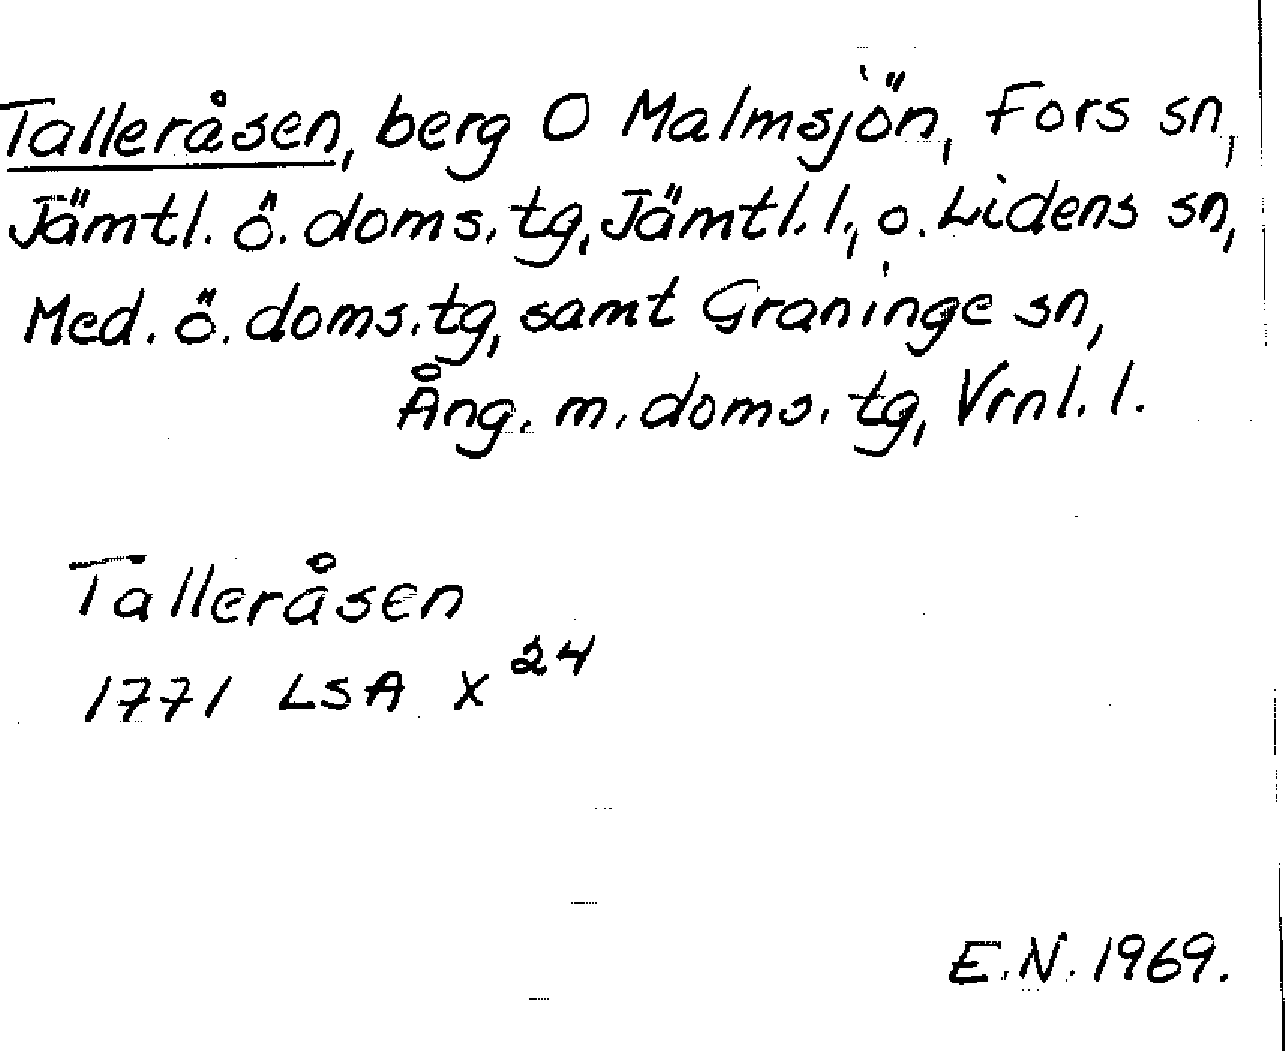 Talleråsen, berg O Malmsjön, Fors sn,
Jämtl. ö. doms. tg, Jämtl. l., o. Lidens sn,
Med. ö. doms. tg, samt Graninge sn,
Ång. m. doms. tg, Vrnl. l.
Talleråsen
1771 LSA X 24
E.N. 1969.